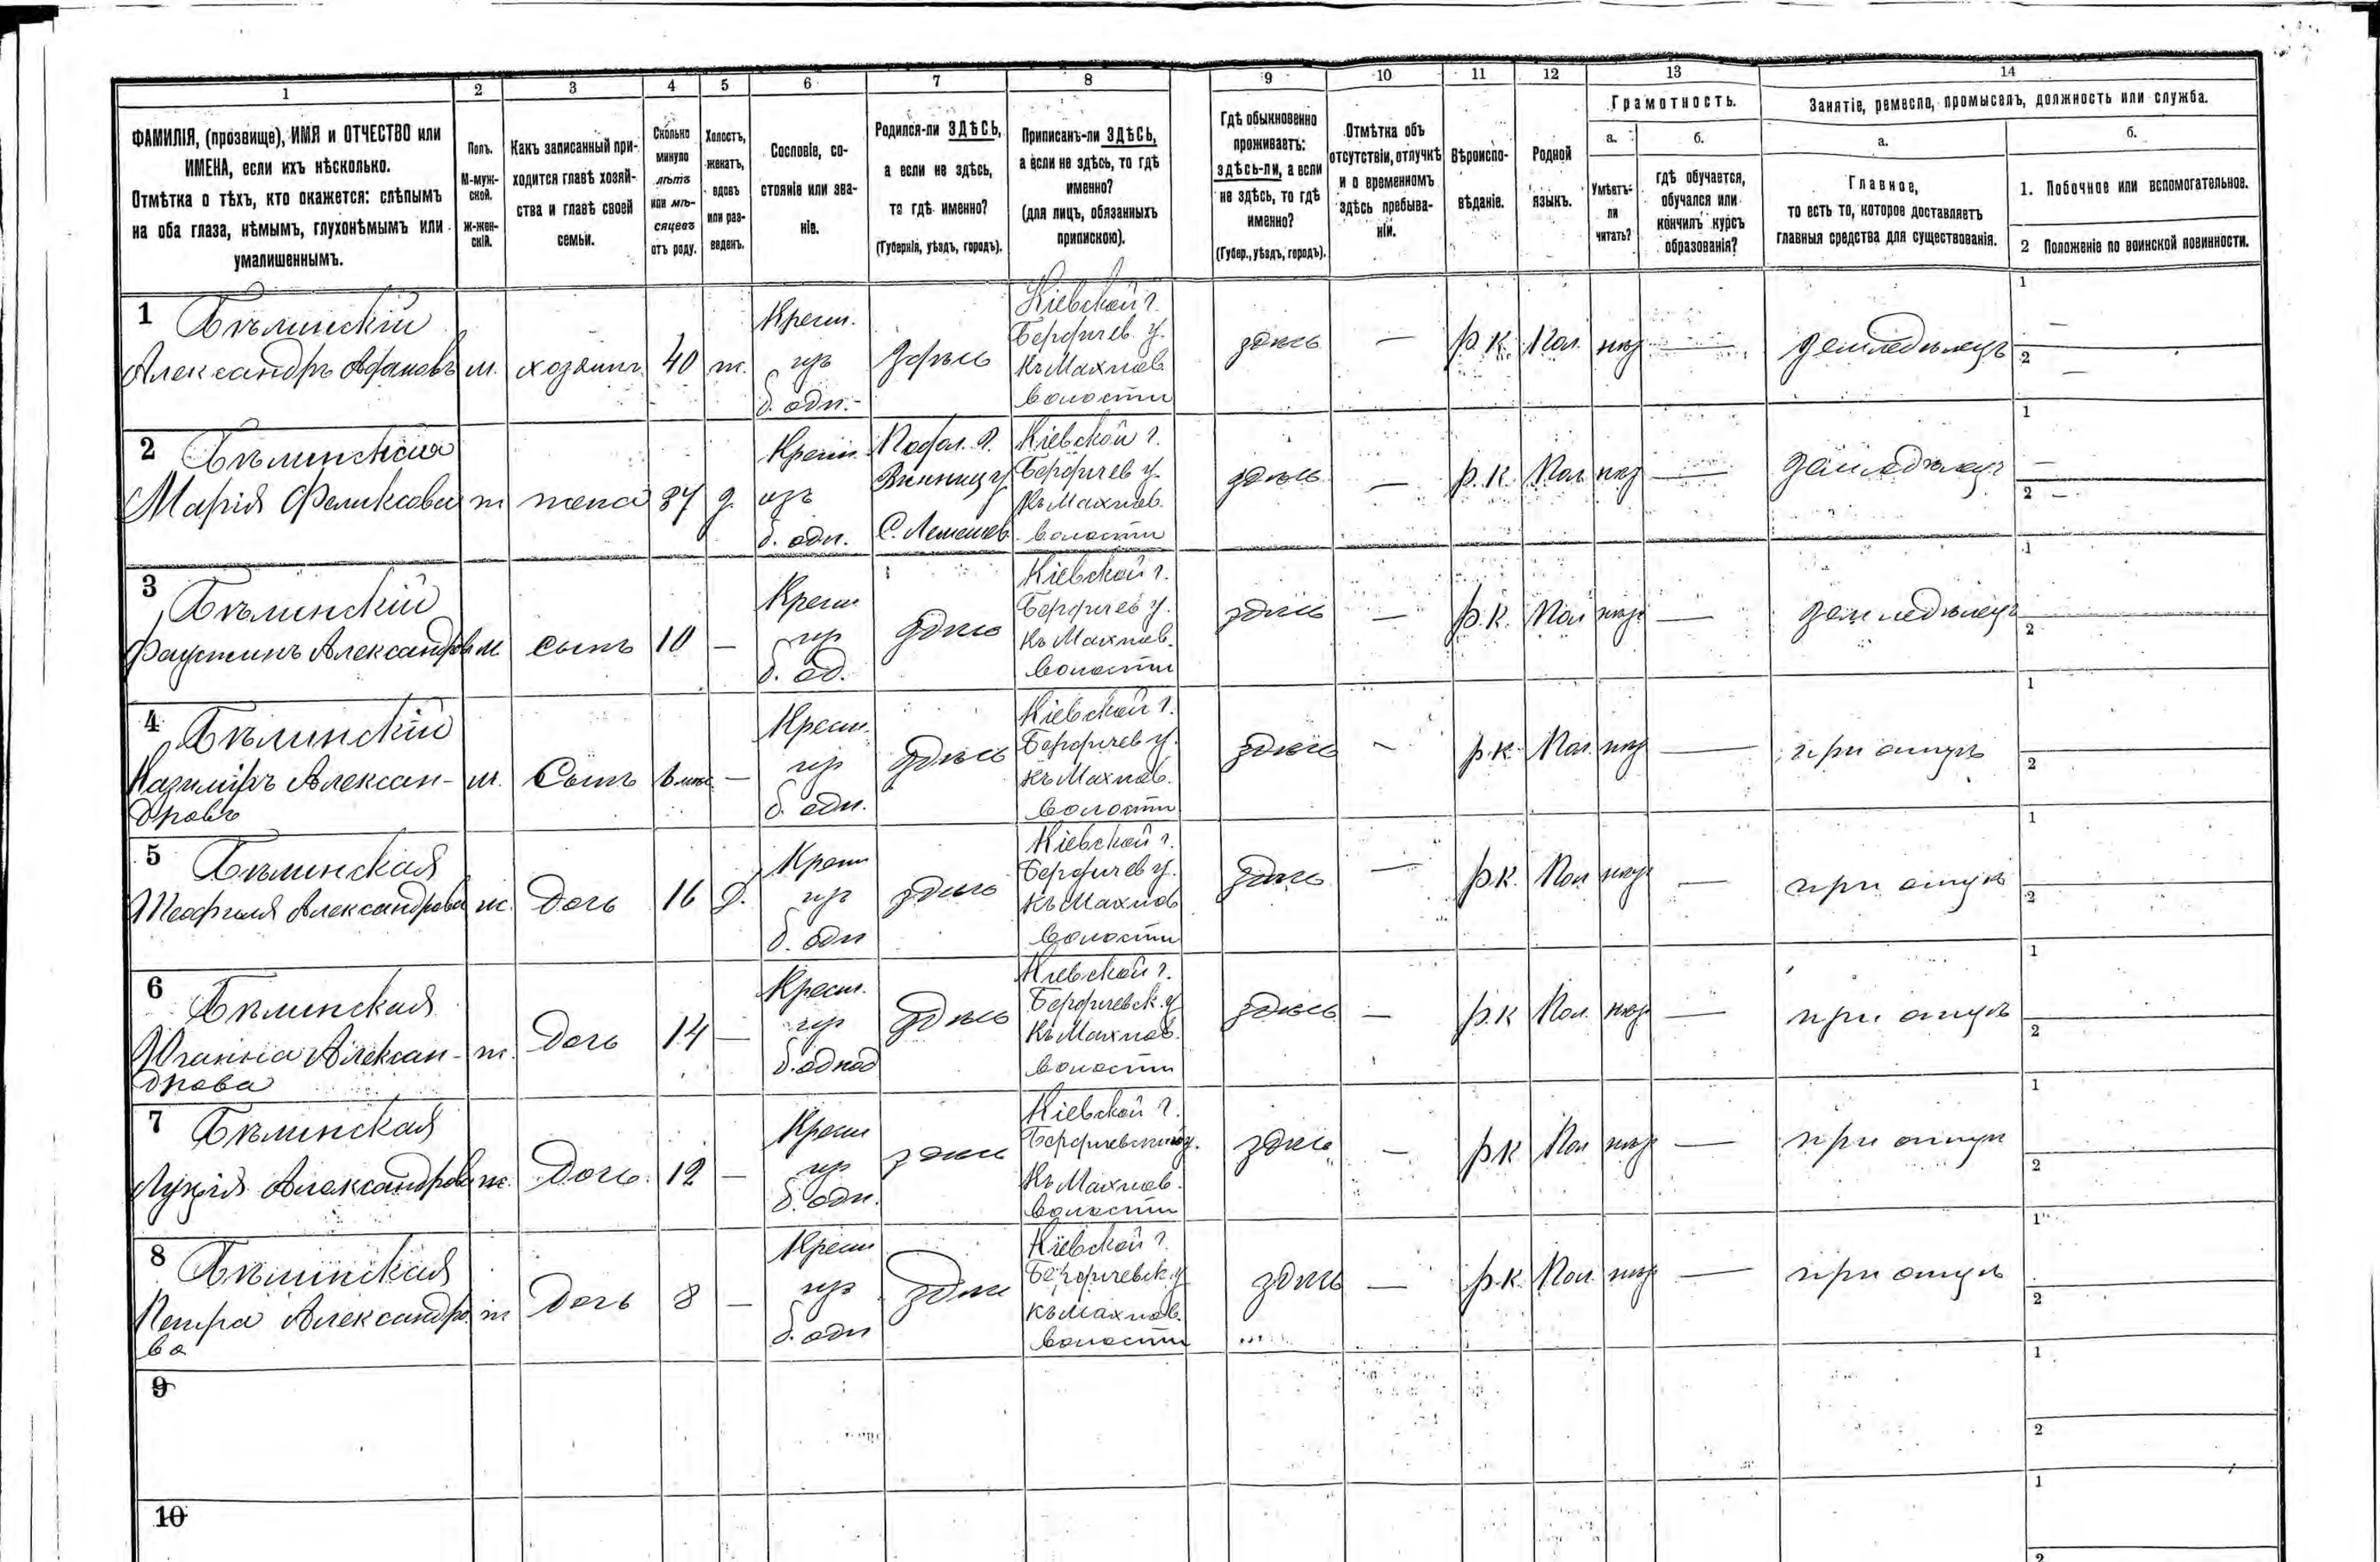 1 2 3 4 5 6 7 8 9 10 11 12 13 14
ФАМИЛІЯ, (прозвище), ИМЯ и ОТЧЕСТВО или
ИМЕНА, если ихъ нѣсколько.
Отмѣтка о тѣхъ, кто окажется: слѣпымъ
на оба глаза, нѣмымъ, глухонѣмымъ или
умалишеннымъ.
Полъ.
М-муж-
ской.
Ж-жен-
скій.
Какъ записанный при-
ходится главѣ хозяй-
ства и главѣ своей
семьи.
Сколько
минуло
лѣтъ
или мѣ-
сяцевъ
отъ роду.
Холостъ,
женатъ,
вдовъ
или раз-
веденъ.
Сословіе, со-
стояніе или зва-
ніе.
Родился-ли ЗДѢСЬ,
а если не здѣсь,
то гдѣ именно?
(Губернія, уѣздъ, городъ).
Приписанъ-ли ЗДѢСЬ,
а если не здѣсь, то гдѣ
именно?
(для лицъ, обязанныхъ
припискою).
Гдѣ обыкновенно
проживаетъ:
здѣсь-ли, а если
не здѣсь, то гдѣ
именно?
(Губер., уѣздъ, городъ).
Отмѣтка объ
отсутствіи, отлучкѣ
и о временномъ
здѣсь пребыва-
ніи.
Вѣроиспо-
вѣданіе.
Родной
языкъ.
Грамотность.
а.
Умѣетъ-
ли
читать?
б.
гдѣ обучается,
обучался или
кончилъ курсъ
образованія?
Занятіе, ремесло, промыселъ, должность или служба.
а.
Главное,
то есть то, которое доставляетъ
главныя средства для существованія.
б.
1. Побочное или вспомогательное.
2 Положеніе по воинской повинности.
1 Бѣлинскій
Александръ Адамовъ м. хозяинъ 40 ж.
Крест.
изъ
б. одн.
здѣсь
Кіевской г.
Бердичев. у.
къ Махнов.
волости
здѣсь — р. к. Пол. нѣт — земледѣлецъ
1 —
2 —
2 Бѣлинская
Марія Феликсова ж жена 37 з.
Крест.
изъ
б. одн.
Подол. г.
Винниц у
С. Лемешов.
Кіевской г.
Бердичев у.
къ Махнов.
волости
здѣсь — р. к. Пол нѣт — земледѣлец
1 —
2 —
3 Бѣлинскій
Фаустинъ Александровъ м. сынъ 10 —
Крест
изъ
б. од.
здѣсь
Кіевской г.
Бердичев у.
къ Махнов.
волости
здѣсь — р. к. Пол нѣт — земледѣлецъ
1
2
4 Бѣлинскій
Казиміръ Алексан-
дровъ
м. Сынъ —
Крест.
изъ
б. одн.
здѣсь
Кіевской г.
Бердичев у.
къ Махнов.
волости
здѣсь — р. к. Пол. нѣт — при отцѣ
1
2
5 Бѣлинская
Теофиля Александрова ж. Дочь 16 д.
Крест
изъ
б. одн
здѣсь
Кіевской г.
Бердичев у.
къ Махнов
волости
здѣсь — р. к. Пол нѣт — при отцѣ
1
2
6 Бѣлинская
Юганна Алексан-
дрова
ж. Дочь 14 —
Крест.
изъ
б. однод
здѣсь
Кіевской г.
Бердичевск. у
къ Махнов.
волости
здѣсь — р. к Пол. нѣт — при отцѣ
1
2
7 Бѣлинская
Луція Александрова ж. Дочь. 12 —
Крест
изъ
б. одн.
здѣсь
Кіевской г.
къ Махнов.
волости
здѣсь — р к Пол нѣт — при отцѣ
1
2
8 Бѣлинская
Петра Александро
ва
ж Дочь 8 —
Крест
изъ
б. одн
здѣсь
Кіевской г.
Бердичевск. у
къ Махнов.
волости
здѣсь — р. к. Пол. нѣт — при отцѣ
1
2
9
1
2
10
1
2